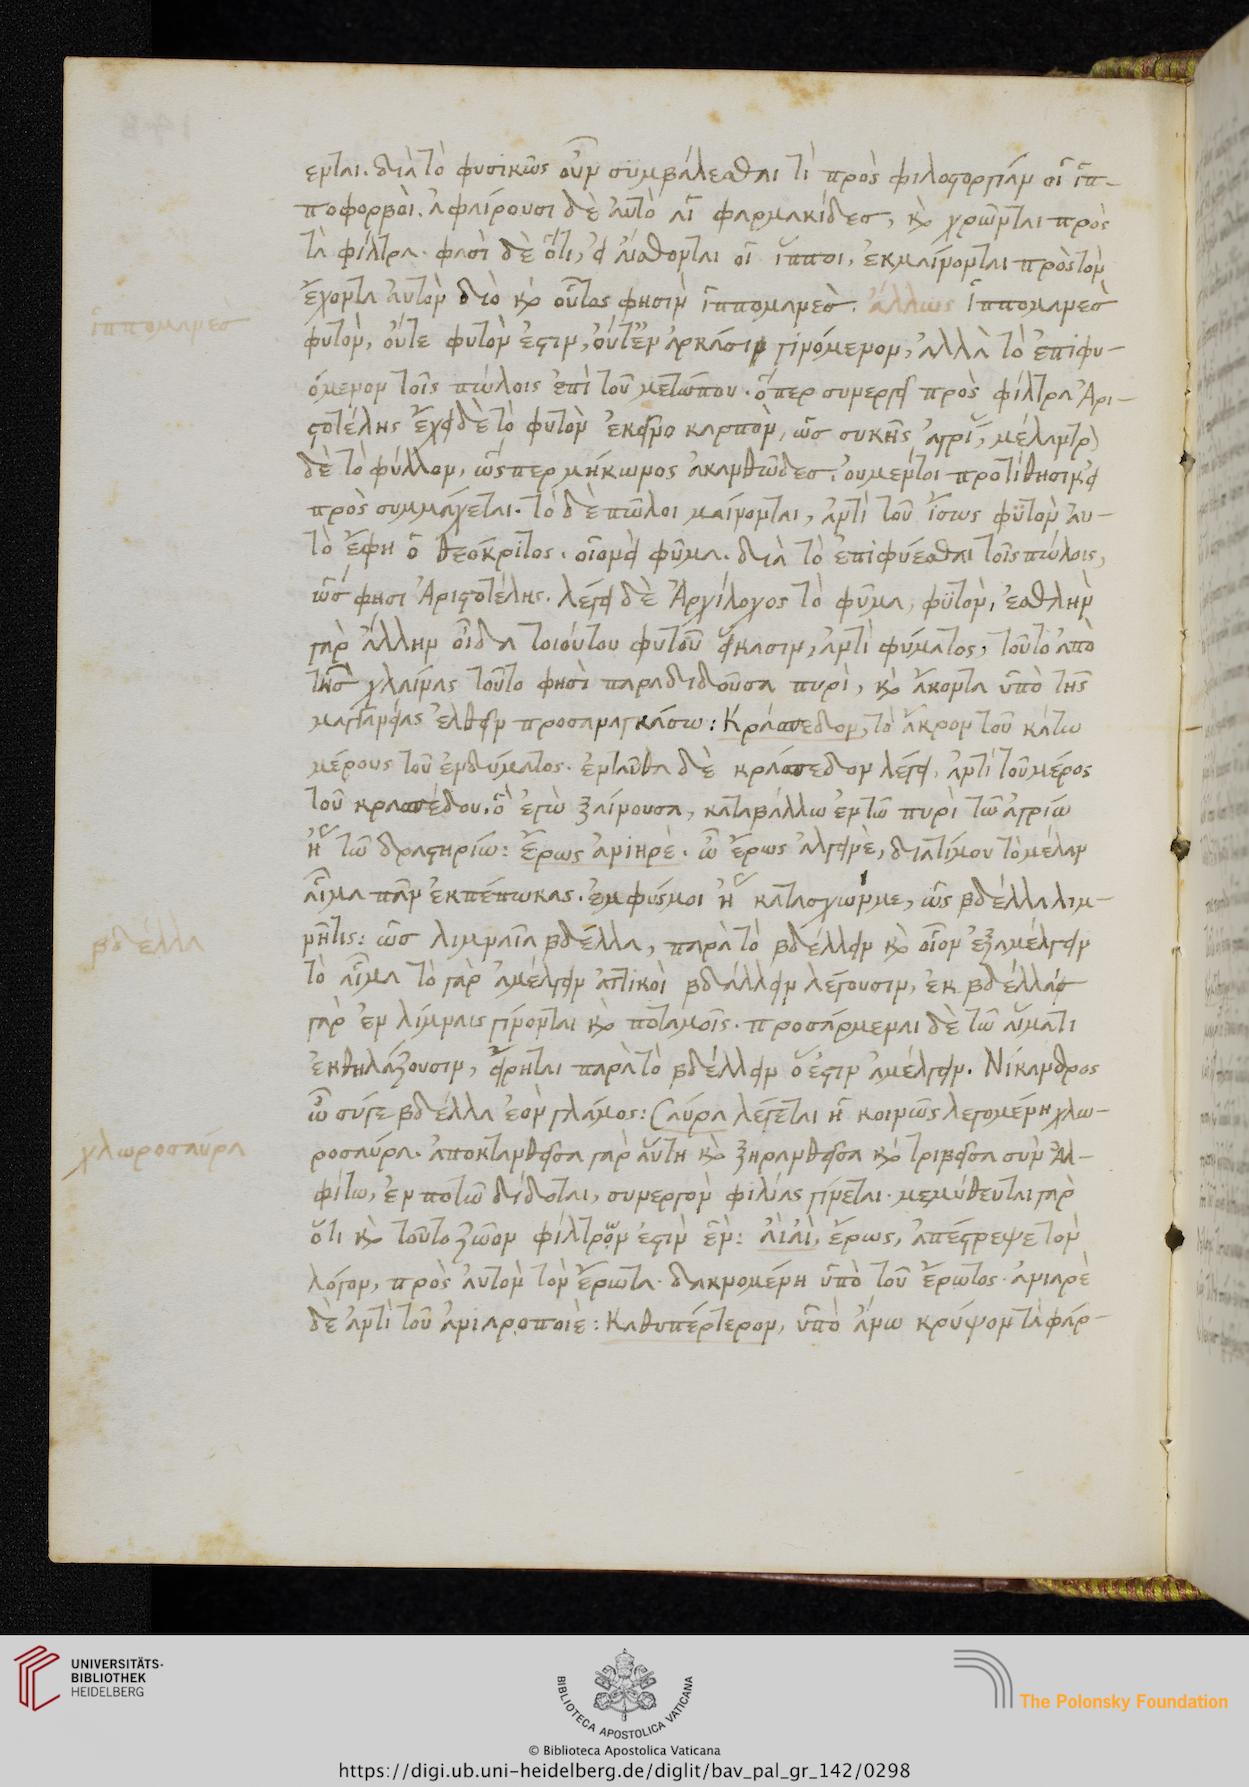 ενται. διὰ τὸ φυσικῶς οὖν συμβάλεσθαι τὶ πρὸς φιλοστοργίαν οἱ ἱπ-
ποφορβοὶ. ἀφαίρουσι δὲ αὐτὸ αἱ φαρμακίδες, κὶ χρῶνται πρὸς
τὰ φίλτρα. φασὶ δὲ ὅτι, εἰ αἴσθονται οἱ ἵπποι, ἐκμαίνονται πρὸς τὸν
ἔχοντα αὐτὸν διὸ κὶ οὗτος φησὶν ἱππομανὲς. ἄλλως ἱππομανὲς
ἱππομανὲς
φυτὸν, οὔτε φυτὸν ἐστιν, οὔτ' ἐν ἀρκάσιν γινόμενον, ἀλλὰ τὸ ἐπιφυ-
όμενον τοῖς πώλοις ἐπὶ τοῦ μετώπου. ὅπερ συνεργεῖ πρὸς φίλτρα Ἀρι-
στοτέλης ἔχει δὲ τὸ φυτὸν ἐκεῖνο καρπὸν, ὡς συκῆς ἀγρί, μέλαν τὸ
δὲ τὸ φύλλον, ὥσπερ μήκωνος ἀκανθῶδες. οὐ μέντοι προτίθησιν εἰ
πρὸς συμμάχεται. τὸ δὲ πῶλοι μαίνονται, ἀντὶ τοῦ ἴσως φϋτὸν αὐ-
τὸ ἔφη ὁ Θεόκριτος. οἱονεὶ φῦμα. διὰ τὸ ἐπιφύεσθαι τοῖς πώλοις,
ὥς φησι Ἀριστοτέλης. λέγει δὲ Ἀρχίλοχος τὸ φῦμα, φϋτὸν, ἐσθλὴν
γὰρ ἄλλην οἶδα τοιούτου φυτοῦ ἴησιν, ἀντὶ φύματος, τοῦτο ἀπὸ
τῆς χλαίνας τοῦτο φησὶ παραδιδοῦσα πυρὶ, κὶ ἄκοντα ὑπὸ τῆς
μαγγανείας ἐλθεῖν προσαναγκάσω: Κράσπεδον, τὸ ἄκρον τοῦ κάτω
μέρους τοῦ ἐνδύματος. ἐνταῦθα δὲ κράσπεδον λέγει, ἀντὶ τοῦ μέρος
τοῦ κρασπέδου. ὃ ἐγὼ ξαίνουσα, καταβάλλω ἐν τῶ πυρὶ τῶ ἀγρίω
ἢ τῶ δραστηρίω: Ἔρως ἀνιηρὲ. ὦ ἔρως ἀλγεινὲ, διατί μου τὸ μέλαν
αἷμα πᾶν ἐκπέπωκας. ἐμφύς μοι ἢ κατασχών με, ὡς βδέλλα λιμ-
βδέλλα
νῆτις: ὡς λιμναία βδέλλα, παρὰ τὸ βδέλλειν κὶ οἷον ἐξαμέλγειν
τὸ αἷμα τὸ γὰρ ἀμέλγειν ἀττικοὶ βδάλλειν λέγουσιν, ἐκ βδέλλας
γὰρ ἐν λίμναις γίνονται κὶ ποταμοῖς. προσάρμεναι δὲ τῶ αἵματι
ἐκθηλάζουσιν, εἴρηται παρὰ τὸ βδέλλειν ὅ ἐστιν ἀμέλγειν. Νίκανδρος
ὦ σύγε βδέλλα ἐὸν γλάμος: Σαύρα λέγεται ἡ κοινῶς λεγομένη χλω-
χλωροσαύρα
ροσαύρα. ἀποκτανθεῖσα γὰρ αὕτη κὶ ξηρανθεῖσα κὶ τριβεῖσα σὺν ἀλ-
φίτω, ἐν ποτῶ δίδοται, συνεργὸν φιλίας γίνεται. μεμύθευται γὰρ
ὅτι κὶ τοῦτο ζῶον φίλτρων ἐστὶν ἓν: Αἰαὶ, ἔρως, ἀπέστρεψε τὸν
λόγον, πρὸς αὐτὸν τὸν ἔρωτα. δακνομένη ὑπὸ τοῦ ἔρωτος. ἀνιαρὲ
δὲ ἀντὶ τοῦ ἀνιαροποιὲ: Καθυπέρτερον, ὑπὸ ἄνω κρύψον τὰ φάρ-
UNIVERSITÄTS-
BIBLIOTHEK
HEIDELBERG
BIBLIOTECA APOSTOLICA VATICANA
The Polonsky Foundation
© Biblioteca Apostolica Vaticana
https://digi.ub.uni-heidelberg.de/diglit/bav_pal_gr_142/0298